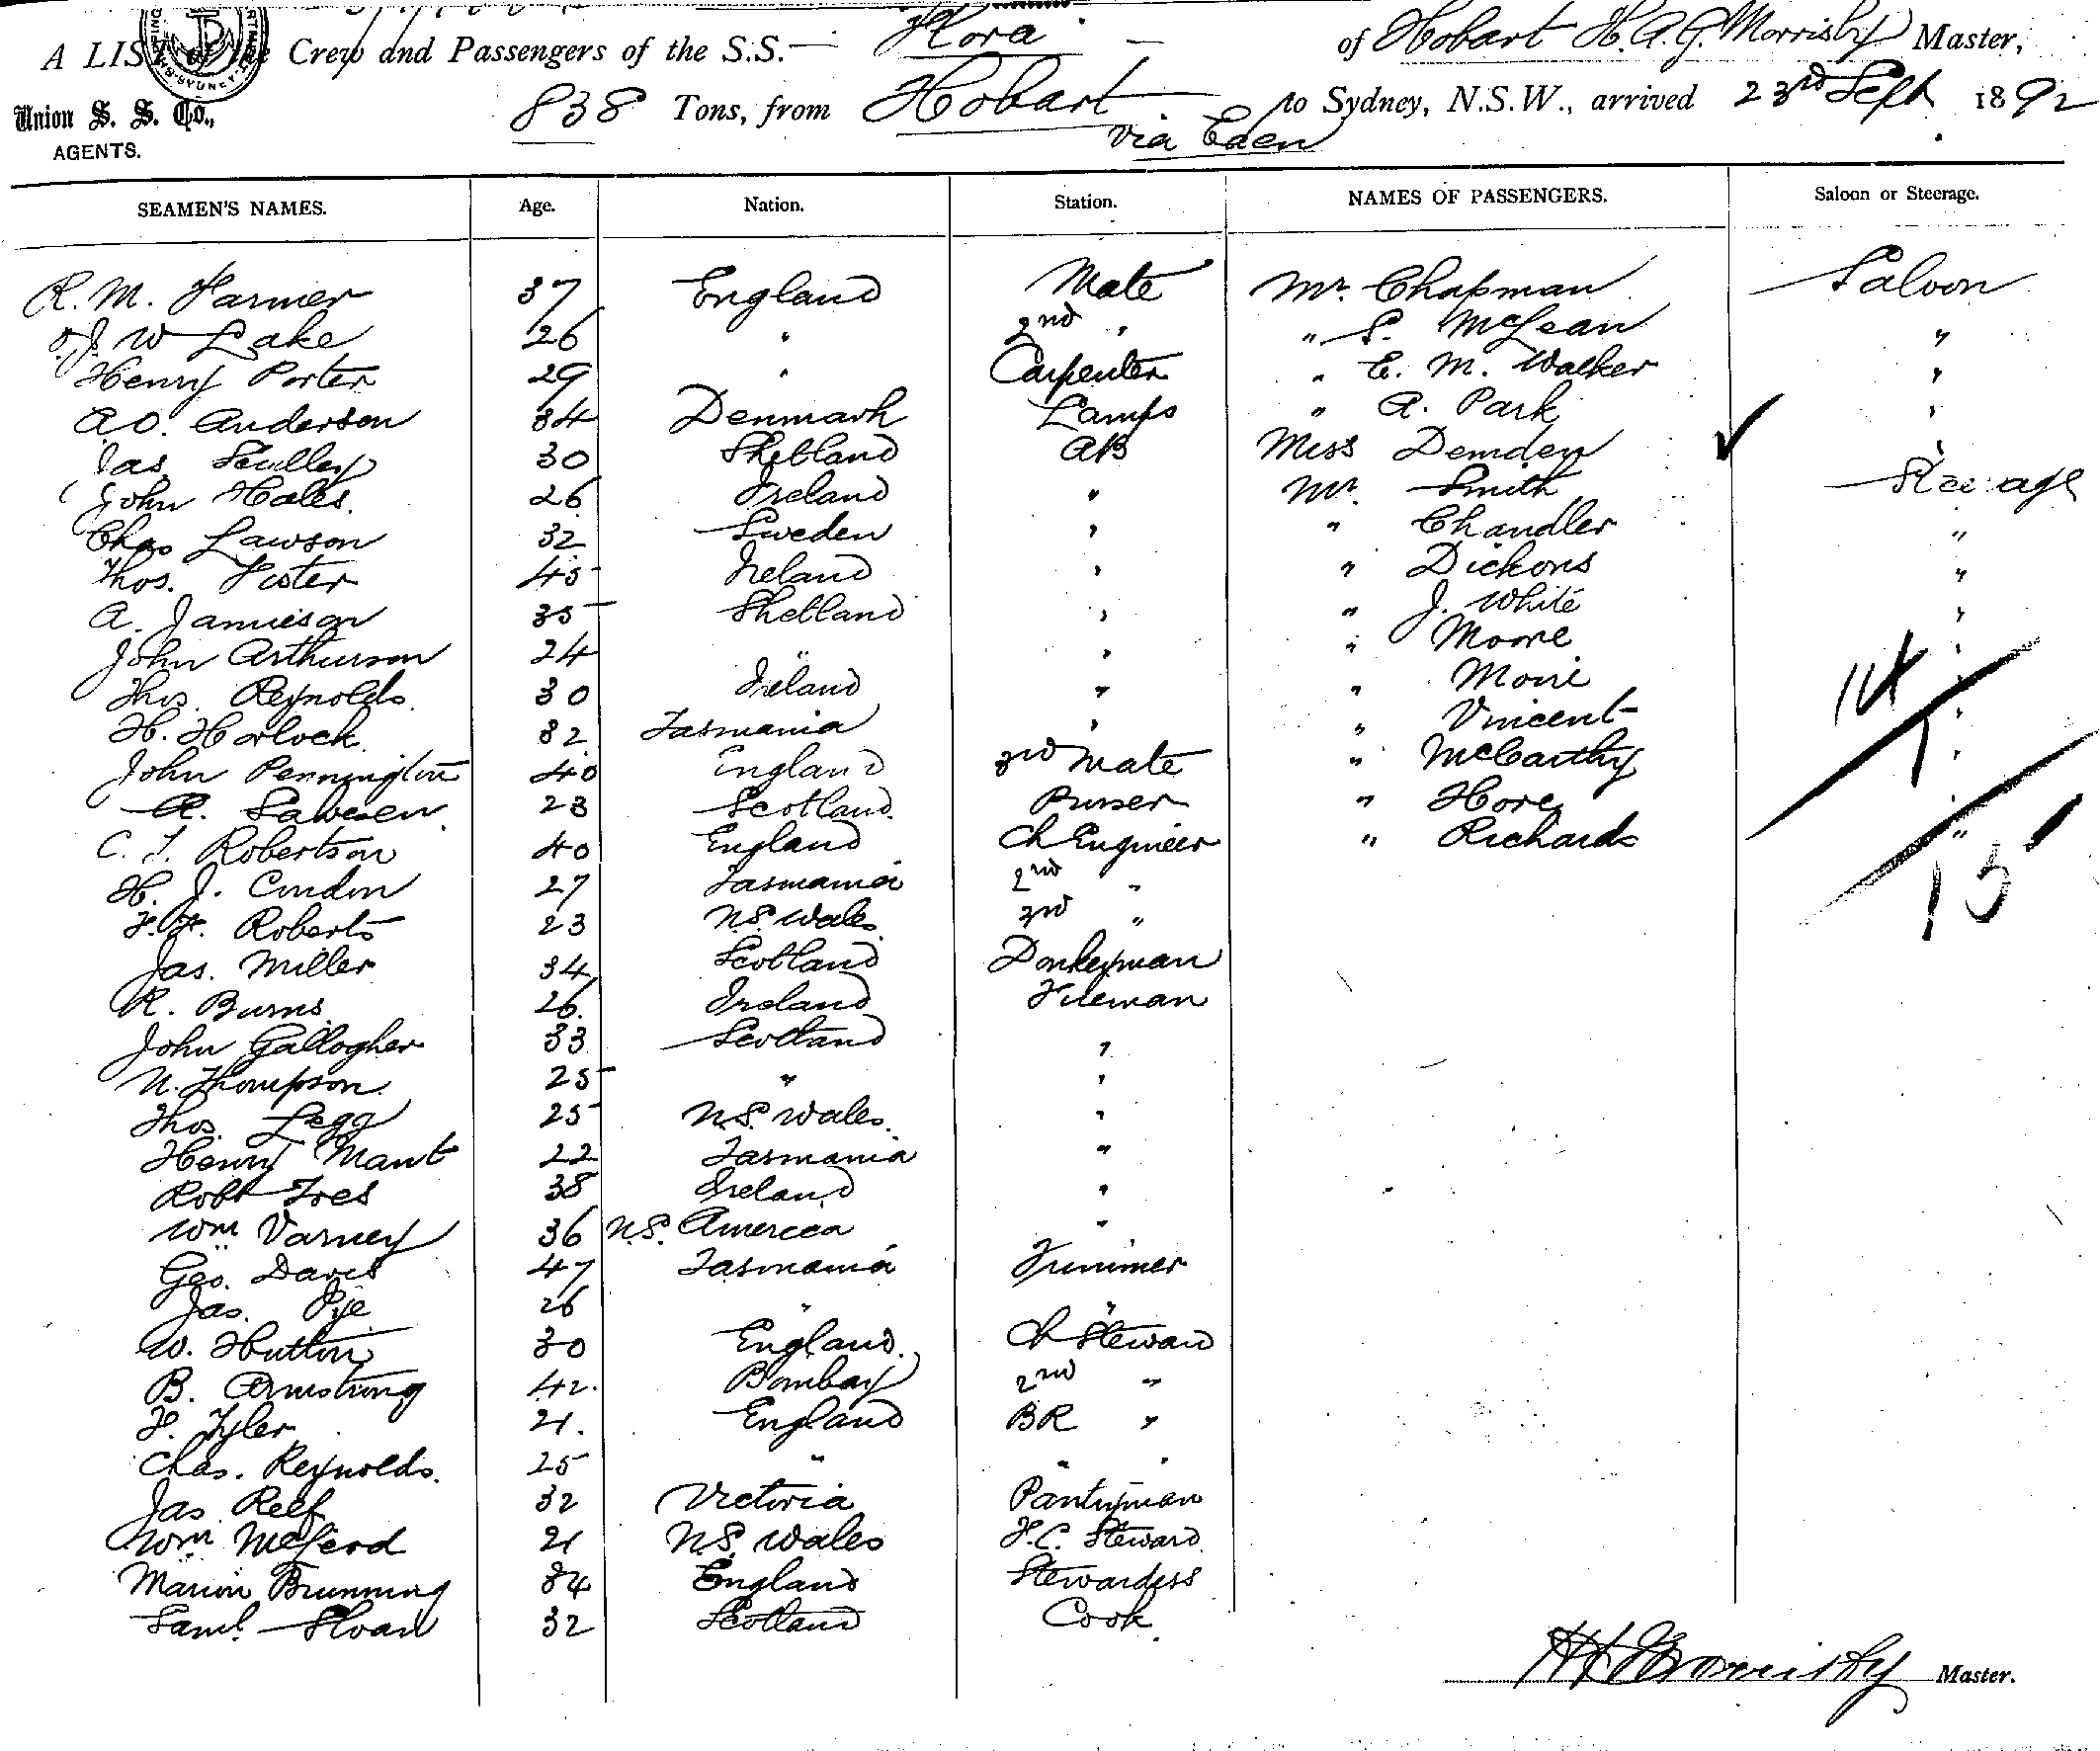 A LIST of the Crew and Passengers of the S.S. Flora of Hobart H. A. G. Morrisby Master,
Union S. S. Co., 838 Tons, from Hobart to Sydney, N.S.W., arrived 23rd Sept 1892
AGENTS. via Eden
SEAMEN'S NAMES. Age. Nation. Station. NAMES OF PASSENGERS. Saloon or Steerage.
R. M. Farmer 37 England Mate Mr. Chapman Saloon
J W Lake 26 " 2nd " " S. McLean "
Henry Porter 29 " Carpenter " E. M. Walker "
A O. Anderson 34 Denmark Lamps " A. Park "
Jas Sculley 30 Shetland AB Miss Demden "
John Hales. 26 Ireland " Mr. Smith Steerage
Chas Lawson 32 Sweden " " Chandler "
Thos. Fister 45 Ireland " " Dickons "
A. Jamieson 35 Shetland " " J. White "
John Arthurson 24 " " " Moore "
Thos. Reynolds. 30 Ireland " " "
H. Horlock 32 Tasmania " " Vincent "
John Pennington 40 England 3rd Mate " McCarthy "
A. 23 Scotland Purser " Hore
C. J. Robertson 40 England Ch Engineer " Richards "
H. J. Condon 27 Tasmania 2nd " 15
F. F. Roberts 23 N.S. Wales 3rd "
Jas. Miller 34 Scotland Donkeyman
R. Burns 26. Ireland Fireman
John Gallogher 33 Scotland "
N. Thompson. 25 " "
Thos. Legg 25 N.S. Wales. "
Henry Mant 22 Tasmania "
Robt Ives 38 Ireland "
Wm Varney 36 N.S. America "
Geo. Davis 47 Tasmania Trimmer
Jas. Pye 26 " "
W. Hutton 30 England. Ch Steward
B. Armstrong 42. Bombay 2nd "
F. Tyler 21. England BR "
Chas. Reynolds. 25 " " "
Jas Relf 32 Victoria Pantryman
Wm McLeod 21 N.S. Wales F.C. Steward
Marion Brunning 34 England Stewardess
Saml. Sloan 32 Scotland Cook.
H Morrisby Master.